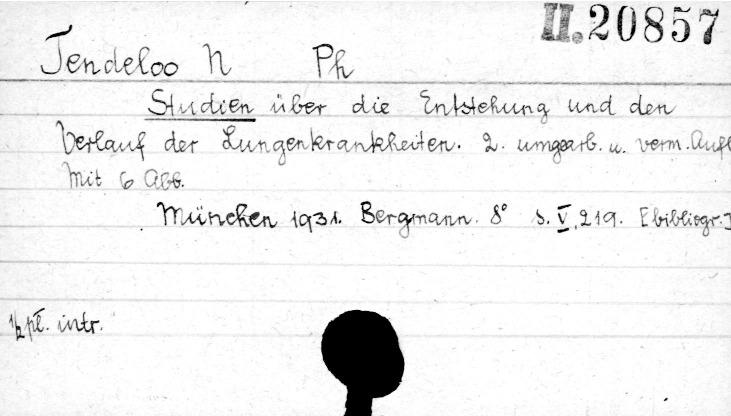 II.20857
Tendeloo N Ph
Studien über die Entstehung und den
Verlauf der Lungenkrankheiten. 2. umgearb. u. verm. Aufl
Mit 6 Abb.
München 1931. Bergmann. 8° s. V, 219. [bibliogr.]
1/2 pł. intr.